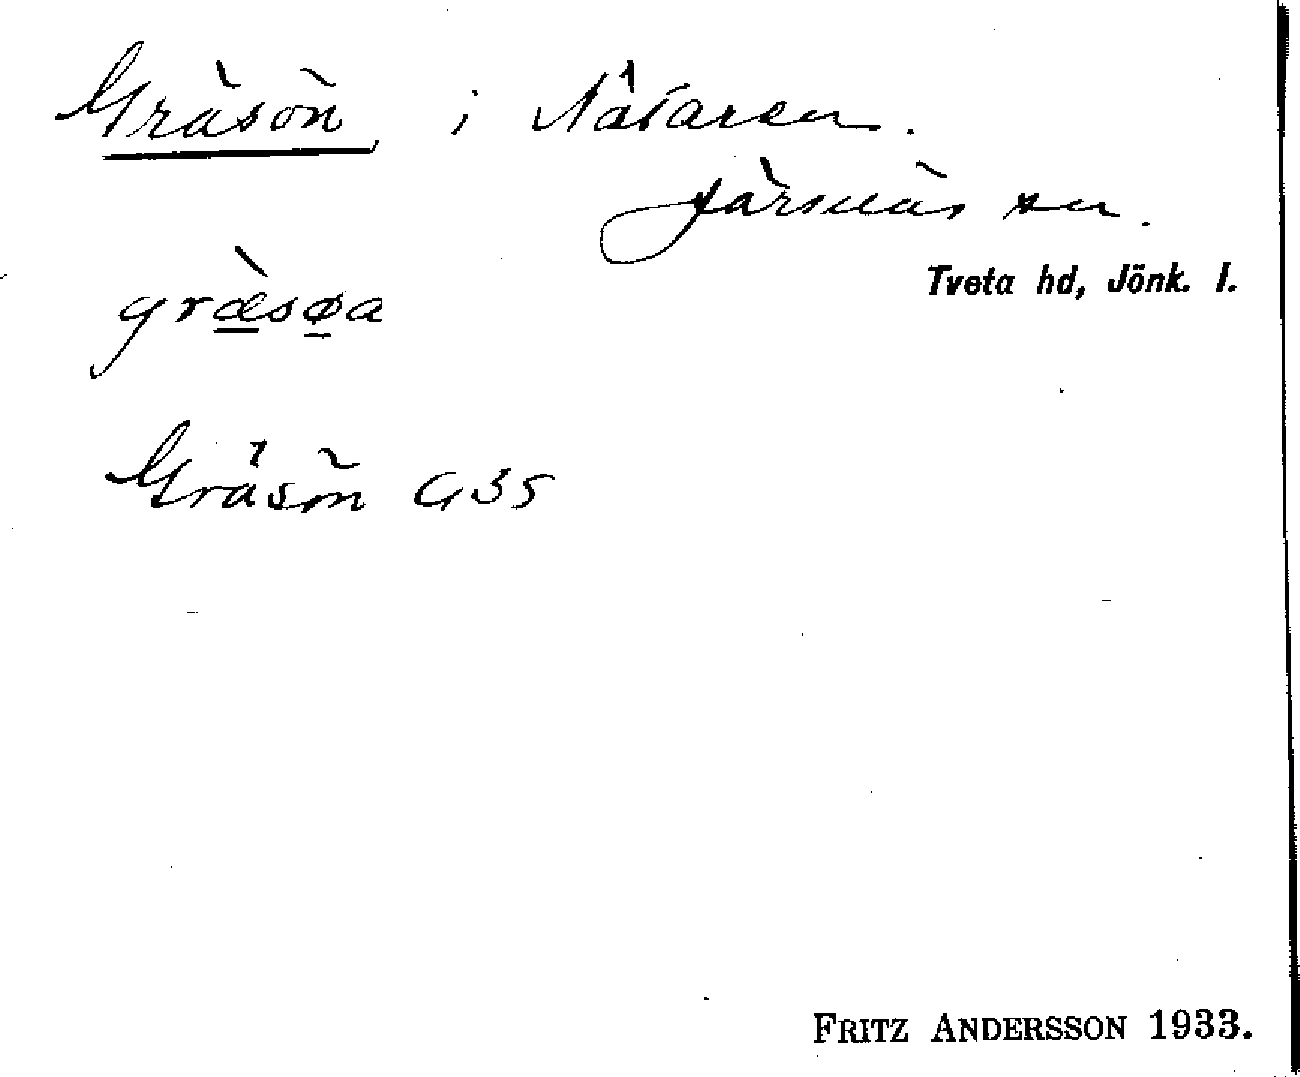 Gräsön i Nätaren.
Järsnäs sn.
Tveta hd, Jönk. l.
græ̀søa
Gräsön G35
FRITZ ANDERSSON 1933.